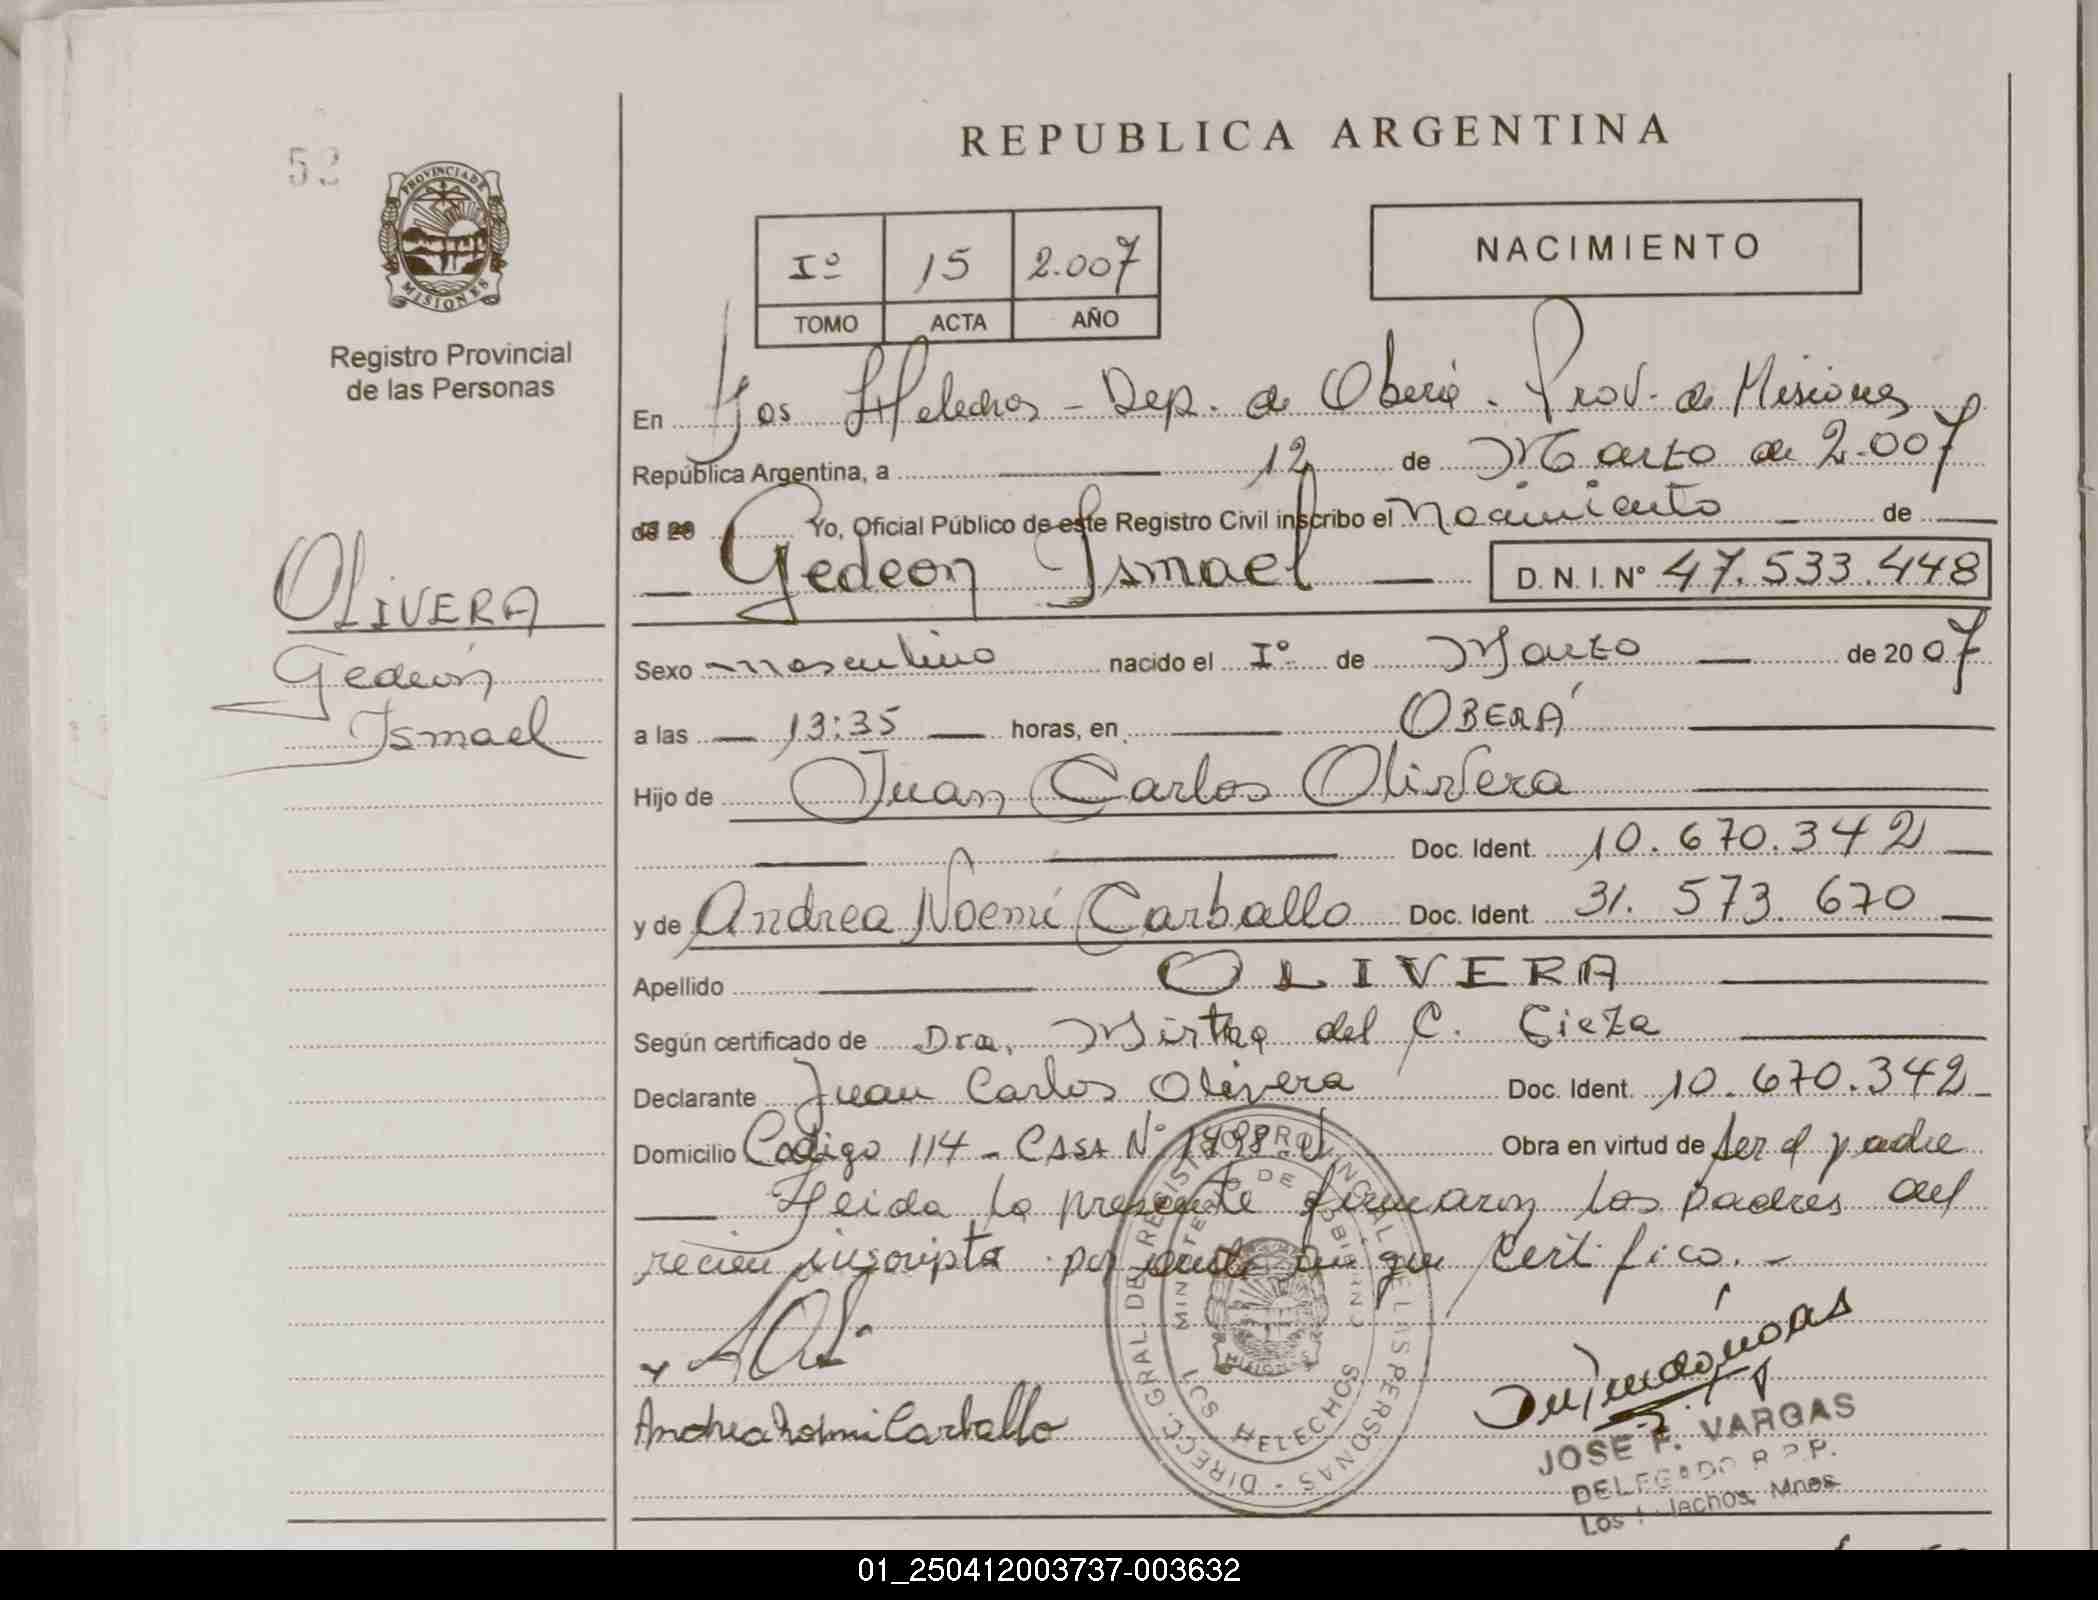 REPUBLICA ARGENTINA
52
PROVINCIA DE
MISIONES
Registro Provincial
de las Personas
Iº 15 2.007
TOMO ACTA AÑO
NACIMIENTO
En Los Helechos - Dep. de Oberá - Prov. de Misiones
República Argentina, a 12 de Marzo de 2.007
de 20 Yo, Oficial Público de este Registro Civil inscribo el Nacimiento de
Gedeon Ismael D. N. I. Nº 47.533.448
OLIVERA
Gedeón
Ismael
Sexo masculino nacido el Iº de Marzo de 2007
a las 13:35 horas, en OBERÁ
Hijo de Juan Carlos Olivera
Doc. Ident. 10.670.342
y de Andrea Noemí Carballo Doc. Ident. 31.573.670
Apellido OLIVERA
Según certificado de Dra. Mirtha del C. Cieza
Declarante Juan Carlos Olivera Doc. Ident. 10.670.342
Domicilio Codigo 114 - CASA Nº Obra en virtud de ser el padre
Leida la presente firmaron los padres del
recien inscripto por ante mi que Certifico.-
DIRECC. GRAL. DE REGISTRO PROVINCIAL DE LAS PERSONAS -
MINISTERIO DE GOBIERNO
HELECHOS
MISIONES
Andrea Noemi Carballo
JOSE F. VARGAS
DELEGADO R.P.P.
Los Helechos, Mnes
01_250412003737-003632